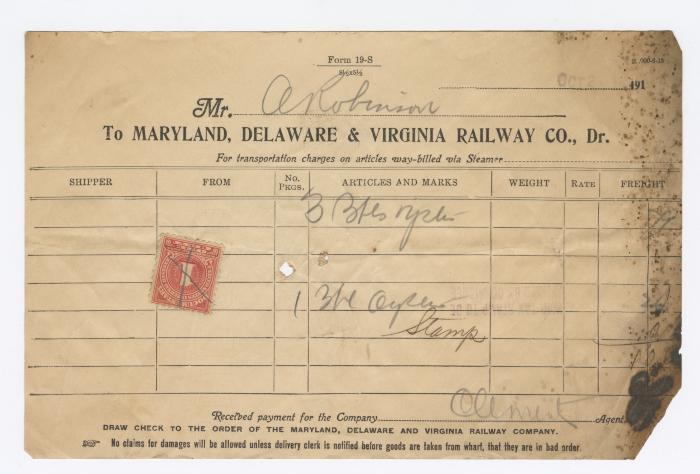 Form 19-S
8½x5½
191
Mr. A Robinson
To MARYLAND, DELAWARE & VIRGINIA RAILWAY CO., Dr.
For transportation charges on articles way-billed via Steamer
SHIPPER FROM No. Pkgs. ARTICLES AND MARKS WEIGHT RATE FREIGHT
3 Bbls
1
Stamp
Received payment for the Company Agent.
DRAW CHECK TO THE ORDER OF THE MARYLAND, DELAWARE AND VIRGINIA RAILWAY COMPANY.
No claims for damages will be allowed unless delivery clerk is notified before goods are taken from wharf, that they are in bad order.